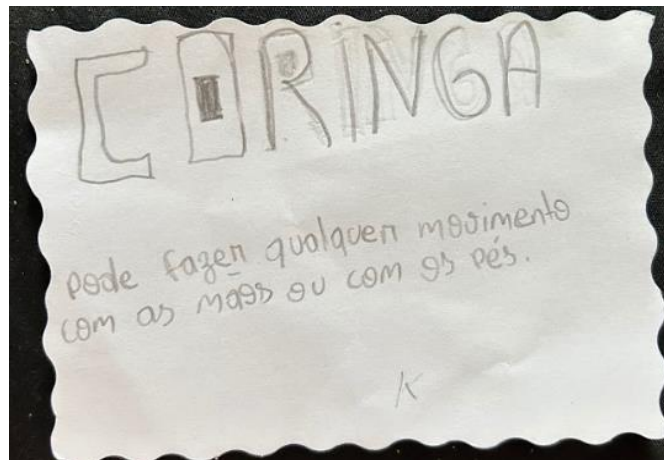 CORINGA
pode fazer qualquer movimento
com as mãos ou com os pés.
K